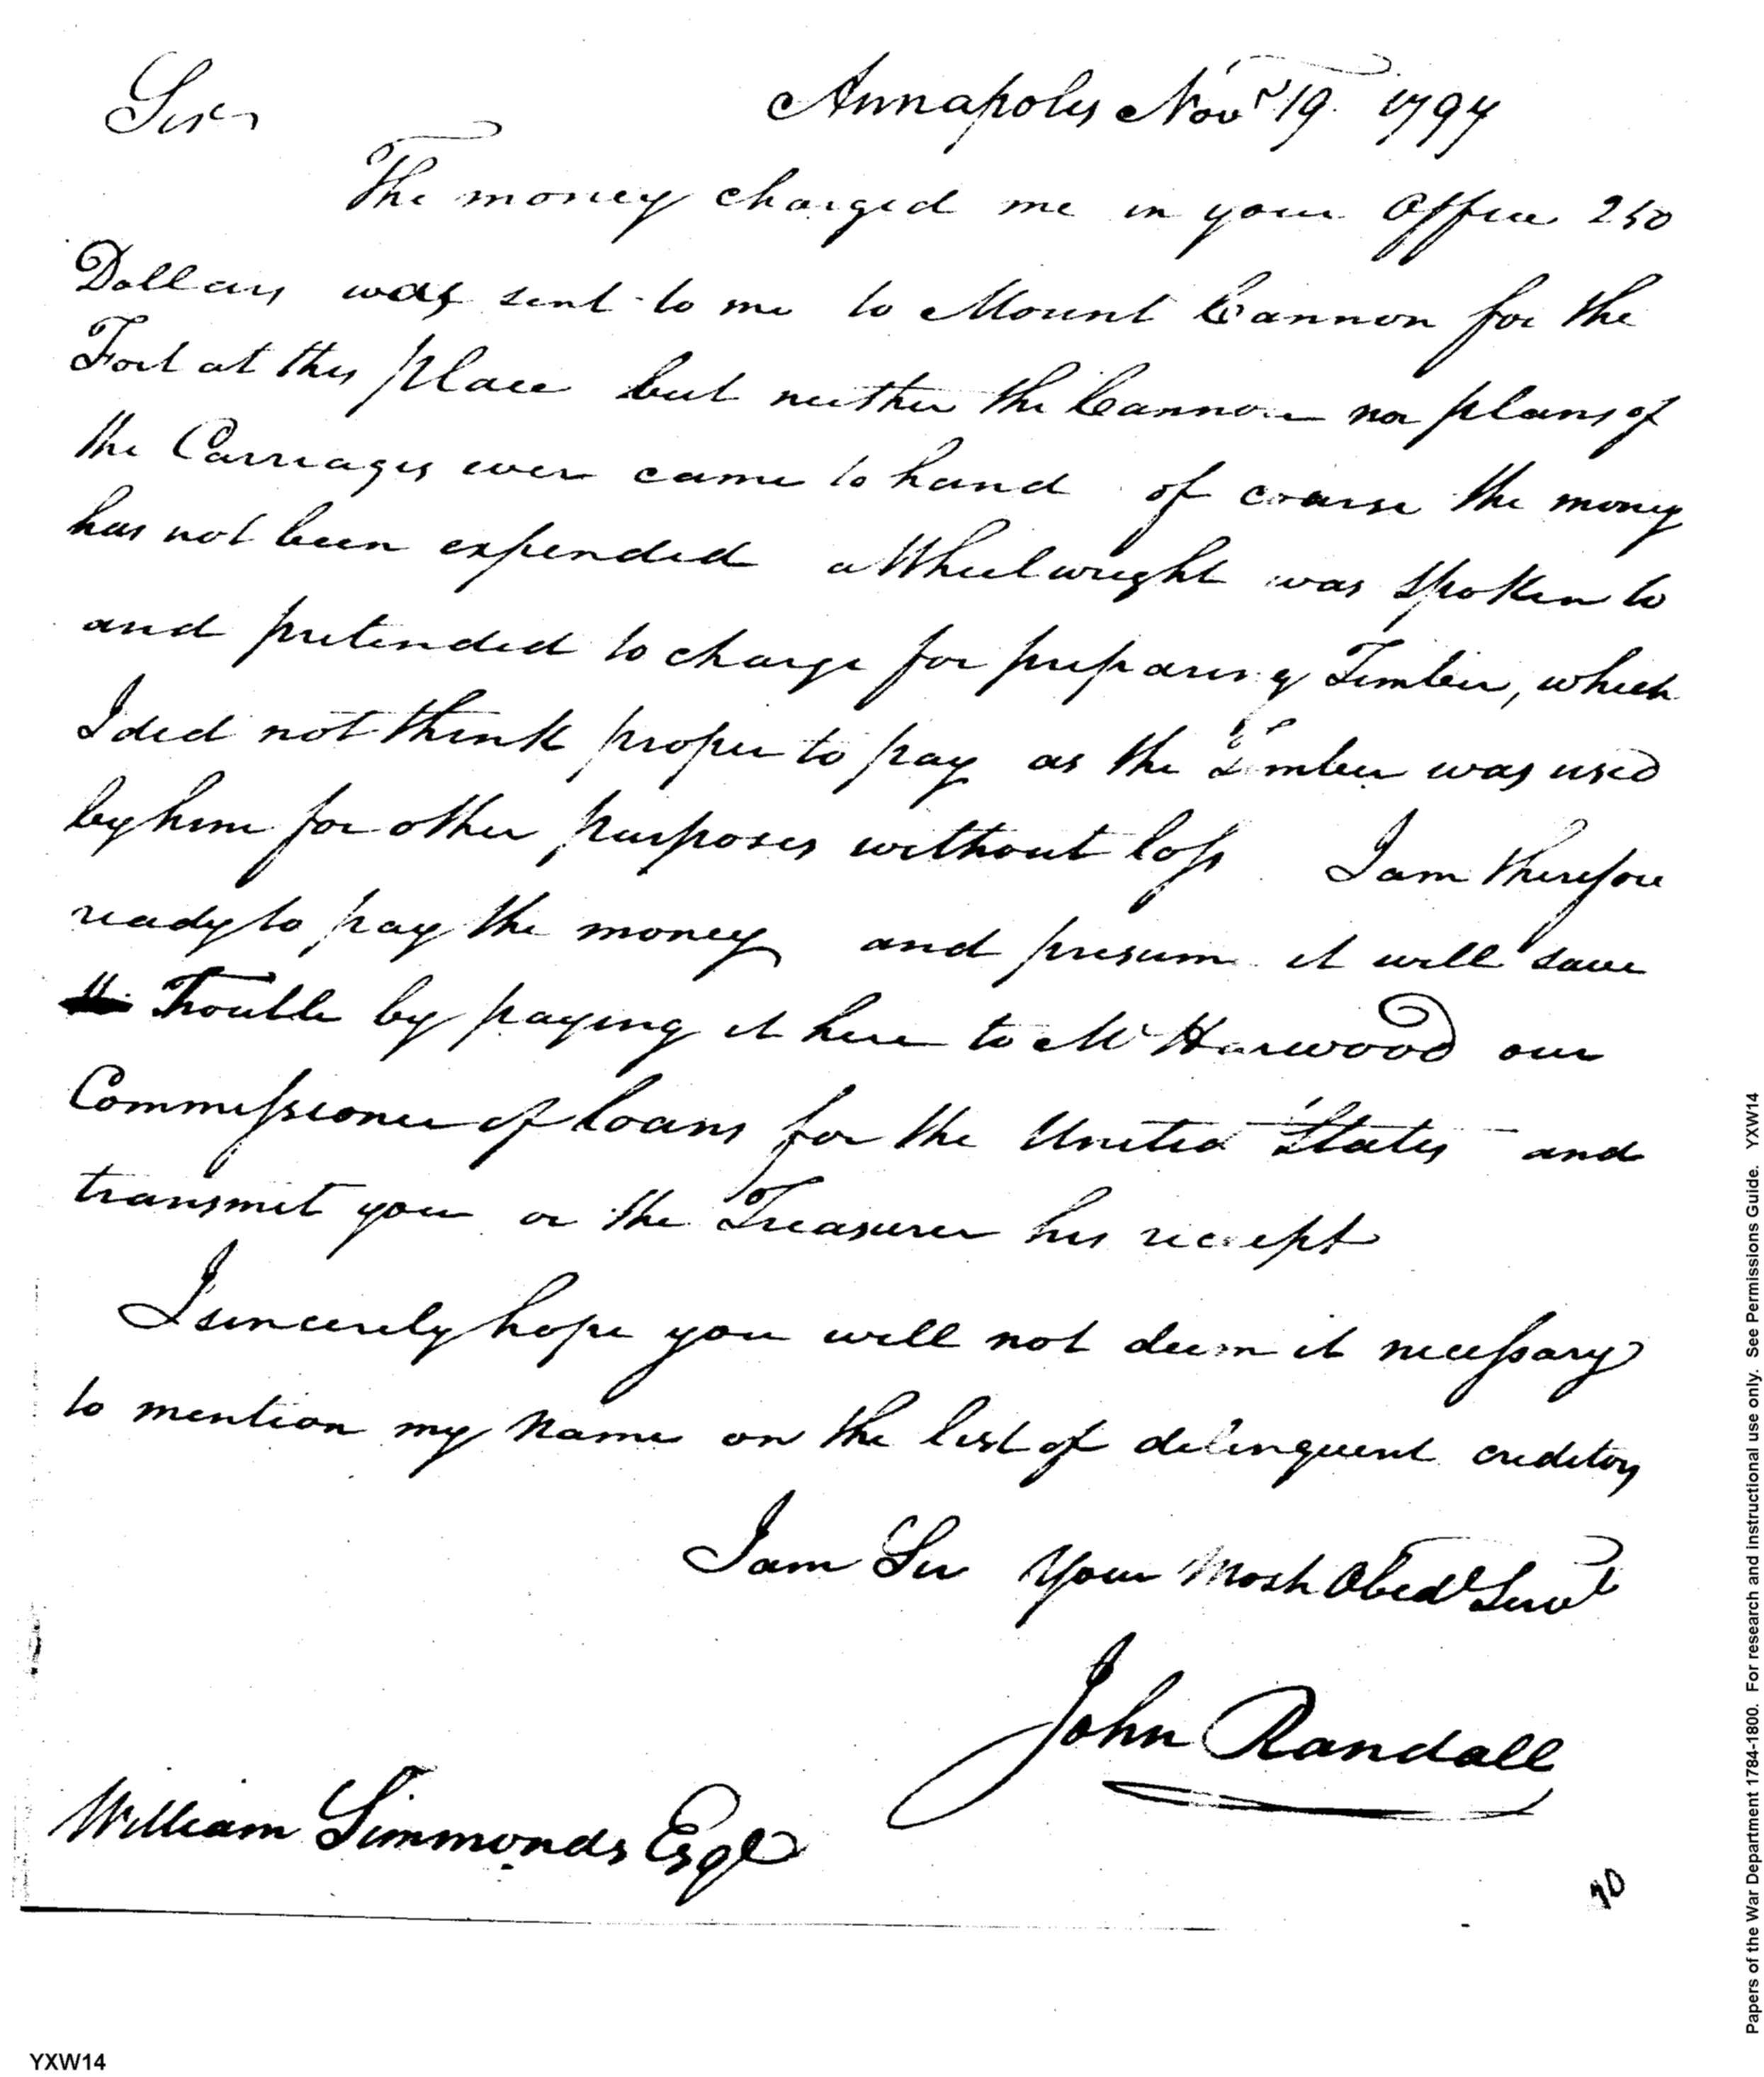 Annapolis Novr 19. 1794
Sir
The money charged me in your Office 250
Dollars was sent to me to Mount Cannon for the
Fort at this place but neither the Cannon nor plans of
the Carriages ever came to hand of coarse the money
has not been expended a Wheelwright was spoken to
and pretended to charge for preparing Timber, which
I did not think proper to pay as the Timber was used
by him for other purposes without loss I am therefore
ready to pay the money and presume it will save
Trouble by paying it here to Mr Harwood our
Commissioner of loans for the United States and
transmit you or the Treasurer his receipt
I sincerely hope you will not deem it necessary
to mention my Name on the list of delinquent creditors
I am Sir Your Most Obedt Servt
John Randall
William Simmonds Esqr
Papers of the War Department 1784-1800. For research and instructional use only. See Permissions Guide. YXW14
YXW14